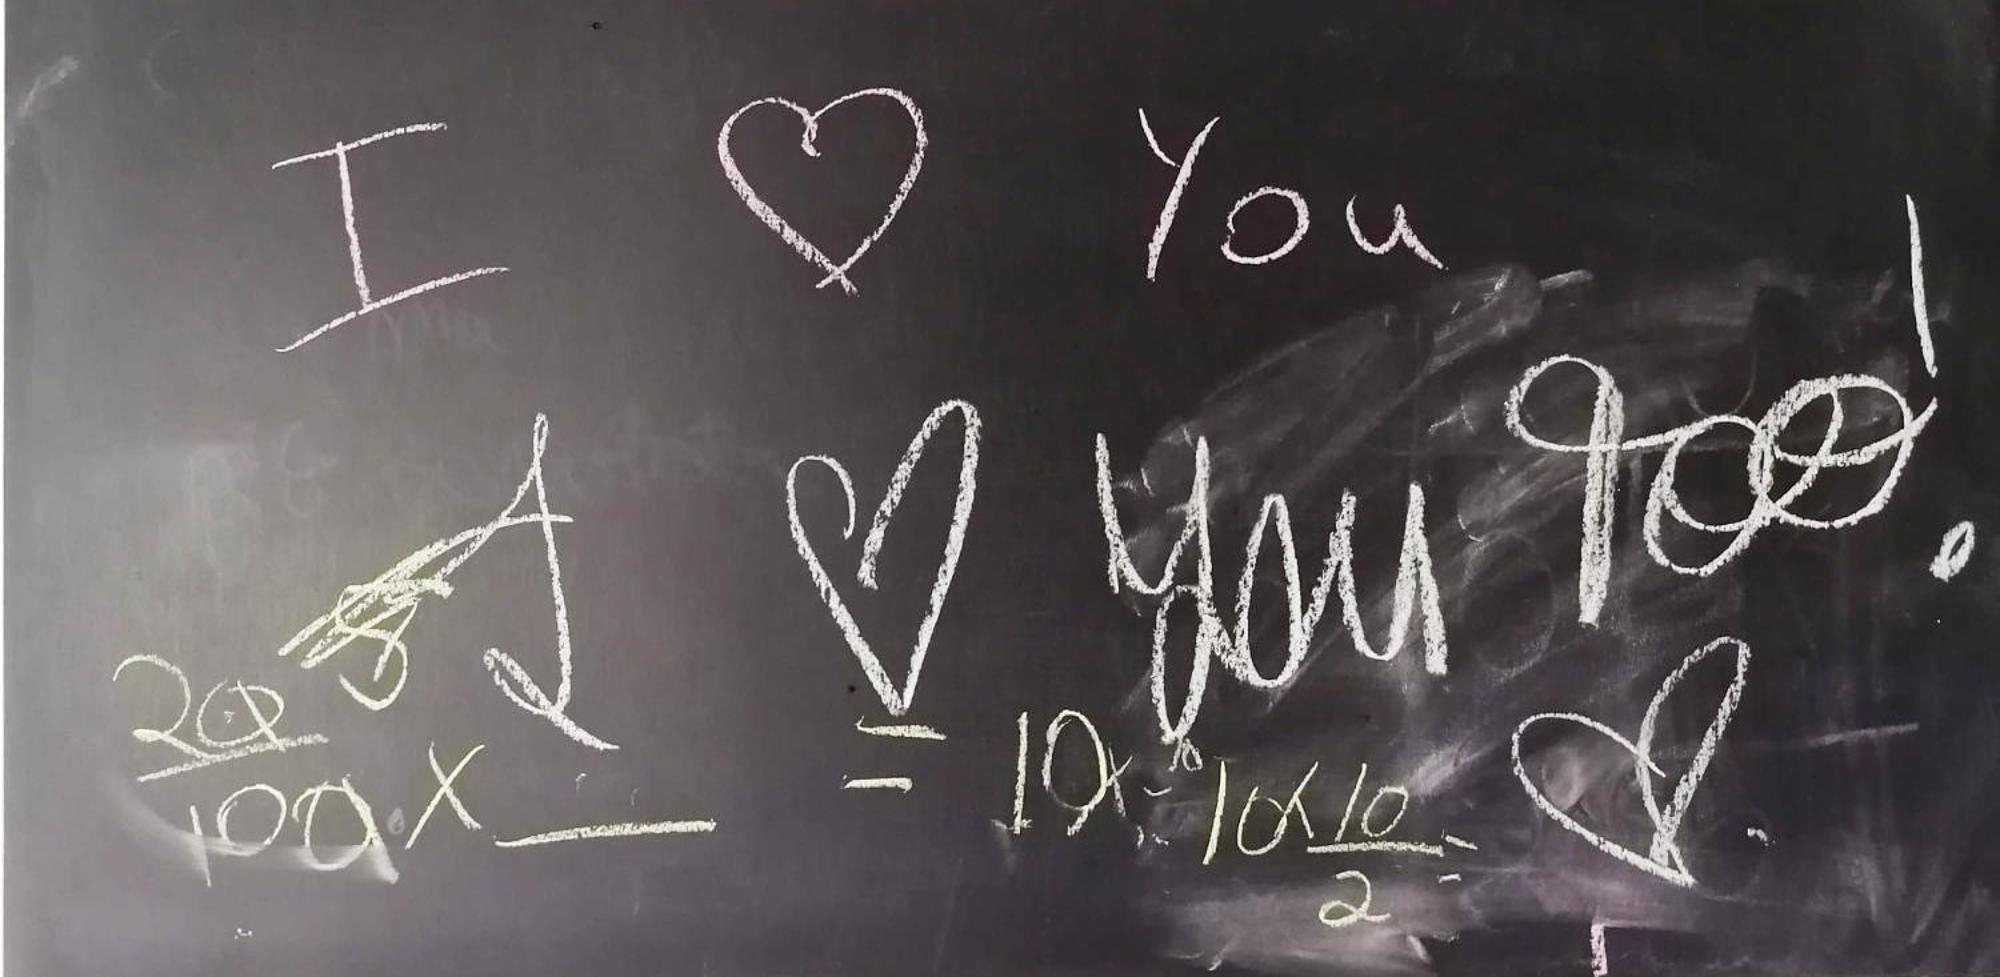 I ♡ You
I ♡ you too!
20
100 x = 10x 10x 10 =
2